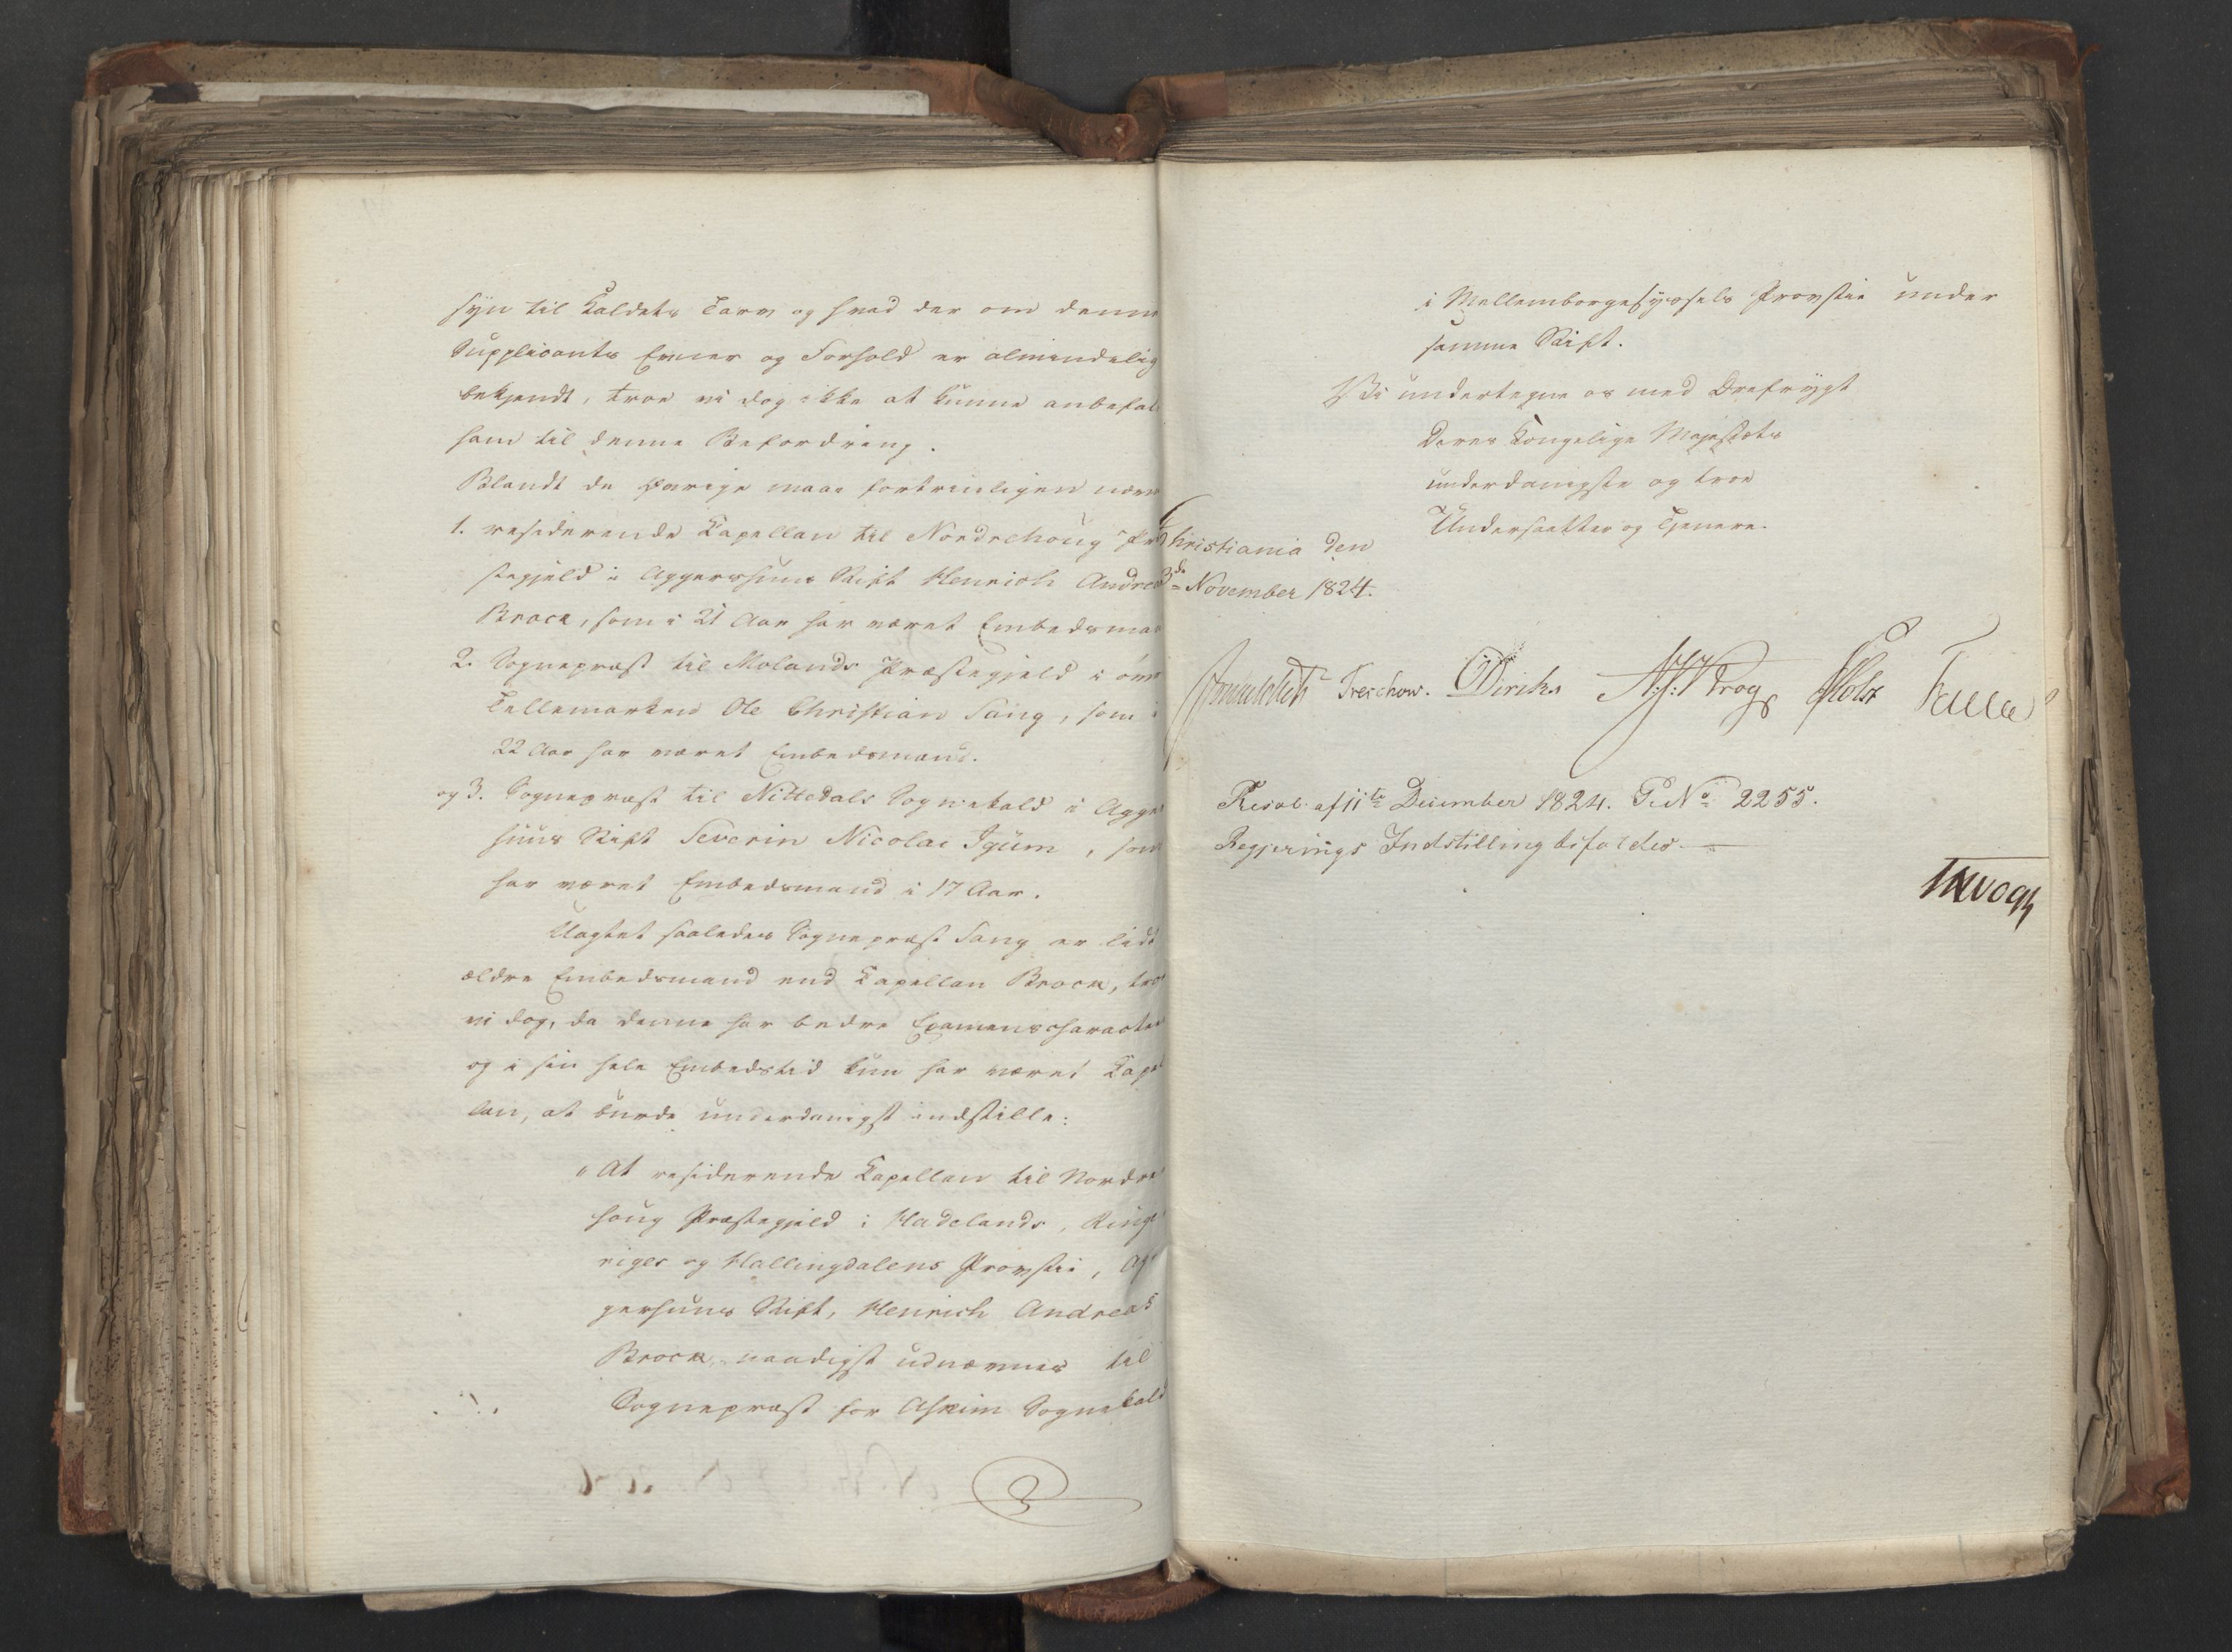 syn til Kaldets Tarv og hvad der om denne
Supplicants Evner og Forhold er almindelig
bekjendt, troe vi dog ikke at kunne anbefale
ham til denne Befordring.
Blandt de øvrige maae fortrinligen nævn
1. residerende Kapellan til Norderhoug Præ
stegjeld i Aggershuus Stift Henrich Andreas
Brock, som i 21 Aar har været Embedsman
2. Sognepræst til Molands Præstegjeld i øvre
Tellemarken Ole Christian Sang, som i
22 Aar har været Embedsmand.
og 3. Sognepræst til Nittedals Sognekald i Agger
huus Stift Severin Nicolai Igum, som
har været Embedsmand i 17 Aar.
Uagtet saaledes Sognepræst Sang er lidt
ældre Embedsmand end Kapellan Brock, troe
vi dog, da denne har bedre Examenscharacteer
og i sin hele Embedstid kun har været Kapel
lan, at burde underdanigst indstille:
"At residerende Kapellan til Nordre
houg Præstegjeld i Hadelands, Ringe
riges og Hallingdalens Provstie, Ag
gershuus Stift, Henrich Andreas
Brock, naadigst udnævnes til
Sognepræst for Askim Sognekald
i Mellemborgesyssels Provstie under
samme Stift.
Vi undertegne os med Ærefrygt
Deres Kongelige Majestæts
underdanigste og troe
Undersaatter og Tjenere.
Christiania den
3de November 1824.
Treschow. Diriks Krog Holst Falsen
Resol. af 11te December 1824. G. No. 2255.
Regjerings Indstilling bifaldes.